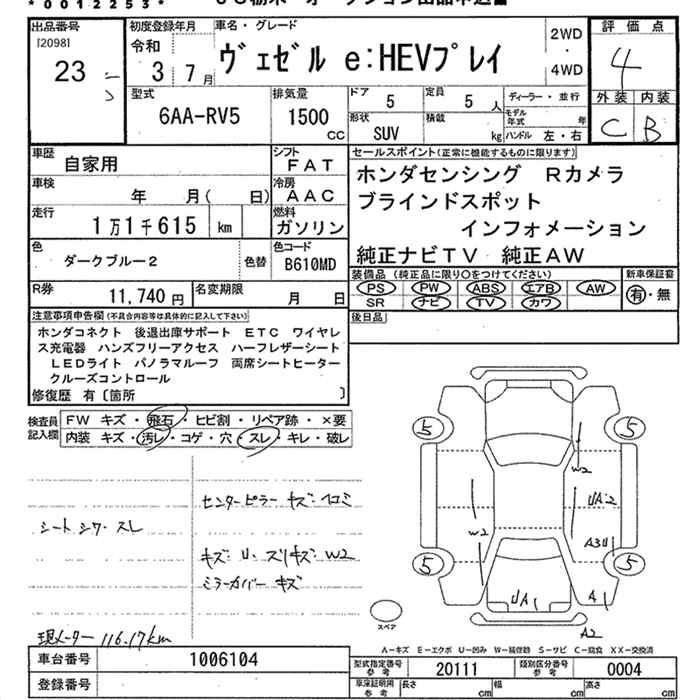 *0012253*
出品番号 初度登録年月 車名・グレード 2WD・4WD 評価点
[2098]
23 令和 3年7月 ヴェゼル e:HEVプレイ 4
型式 排気量 ドア 定員 ディーラー・並行 外装 内装
6AA-RV5 1500CC 5 5人 モデル年式 年 C B
形状 積載
SUV kg ハンドル 左・右
車歴 自家用 シフト FAT セールスポイント(正常に機能するものに限ります)
車検 年 月( 日) 冷房 AAC ホンダセンシング Rカメラ
走行 1万1千615 km 燃料 ガソリン ブラインドスポット
インフォメーション
色 ダークブルー2 色替 色コード B610MD 純正ナビTV 純正AW
装備品 (純正品に限り○をつけてください) 新車保証書
R券 11,740円 名変期限 月 日 PS PW ABS エアB AW 有・無
SR ナビ TV カワ
注意事項申告欄(不具合内容等は具体的に記入して下さい) 後日品
ホンダコネクト 後退出庫サポート ETC ワイヤレ
ス充電器 ハンズフリーアクセス ハーフレザーシート
LEDライト パノラマルーフ 両席シートヒーター
クルーズコントロール
修復歴 有〔箇所 〕
検査員記入欄 FW キズ・飛石・ヒビ割・リペア跡・×要
内装 キズ・汚レ・コゲ・穴・スレ・キレ・破レ
5 5
W2
センターピラー キズ・ヘコミ
UA2
シート シワ・スレ
W2 A3U
キズ・U・スリキズ W2
5 5
ミラーカバー キズ
UA1 A1
スペア
A2
現メーター 11617km
A−キズ E−エクボ U−凹み W−補修跡 S−サビ C−腐食 XX−交換済
車台番号 1006104 型式指定番号 参考 20111 類別区分番号 参考 0004
登録番号 車庫証明用 参考 長さ cm 幅 cm 高さ cm